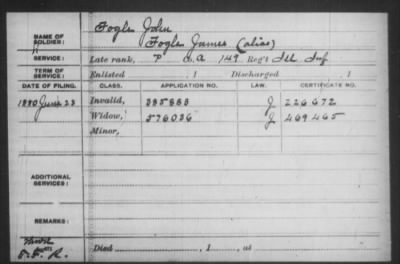 NAME OF SOLDIER: Fogle, John
Fogle, James (alias)
SERVICE: Late rank, P Co. A 149 Reg't Ill Inf
TERM OF SERVICE: Enlisted , 1 Discharged , 1
DATE OF FILING. CLASS. APPLICATION NO. LAW. CERTIFICATE NO.
1880 June 23 Invalid, 385883 J 226672
Widow, 576036 J 469465
Minor,
ADDITIONAL SERVICES:
REMARKS:
Died , 1 , at